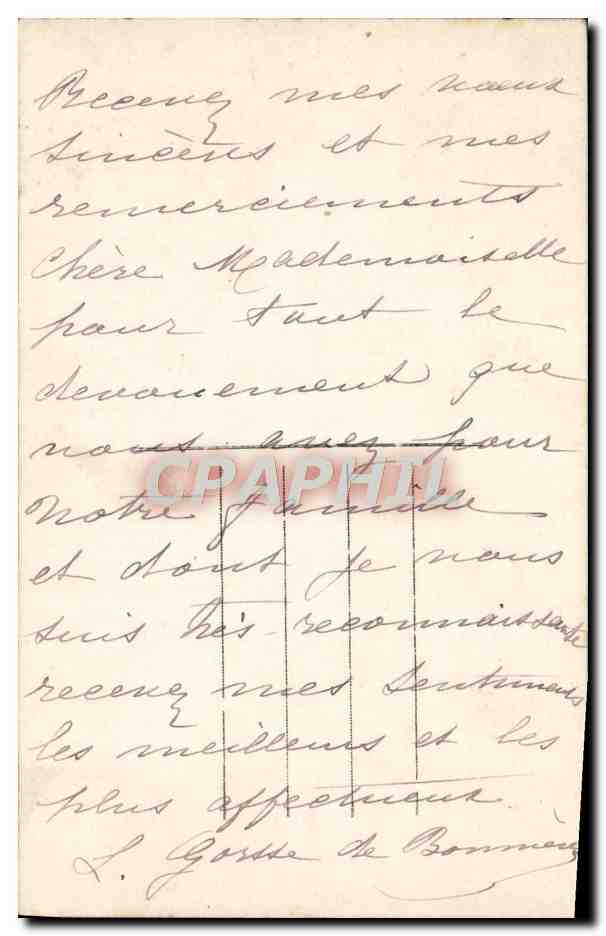 Recevez mes vœux
sincères et mes
remerciements
chère Mademoiselle
pour tout le
devouement que
vous avez pour
CPAPHIL
notre famille
et dont je vous
suis très reconnaissante
recevez mes sentiments
les meilleurs et les
plus affectueux.
L. Gorsse de